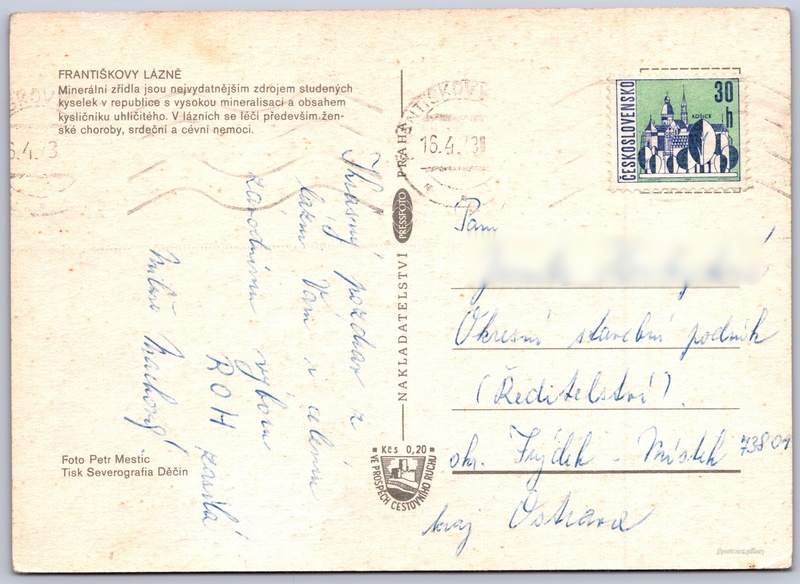 FRANTIŠKOVY LÁZNĚ
Minerální zřídla jsou nejvydatnějším zdrojem studených
kyselek v republice s vysokou mineralisací a obsahem
kysličníku uhličitého. V lázních se léčí především žen-
ské choroby, srdeční a cévní nemoci.
16.4.73
ČESKOSLOVENSKO
30 h
KOŠICE
Krásný pozdrav z
lázní Vám i celému
závodnímu výboru
ROH zasílá
NAKLADATELSTVÍ PRESSFOTO PRAHA
Paní
Okresní stavební podnik
(Ředitelství)
okr. Frýdek - Místek 73801
kraj Ostrava
Kčs 0,20
VE PROSPĚCH CESTOVNÍHO RUCHU
Foto Petr Mestic
Tisk Severografia Děčín